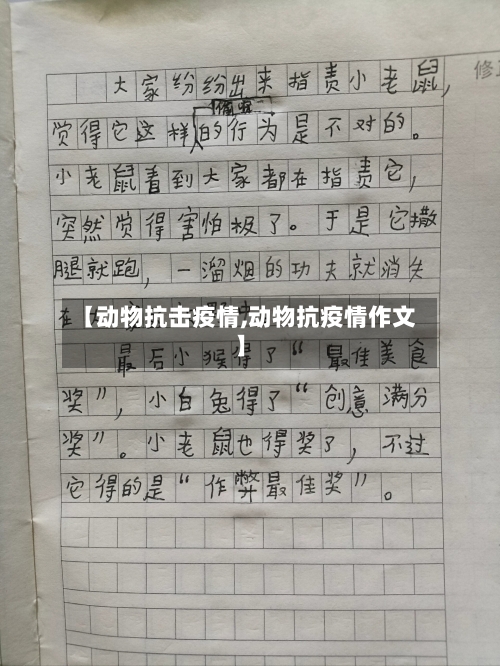 大家纷纷出来指责小老鼠，
修
觉得它这样的行为是不对的。
小老鼠看到大家都在指责它，
突然觉得害怕极了。于是它撒
腿就跑，一溜烟的功夫就消失
在
【动物抗击疫情,动物抗疫情作文
】
最后小猴得了“最佳美食
奖”，小白兔得了“创意满分
奖”。小老鼠也得奖了，不过
它得的是“作弊最佳奖”。